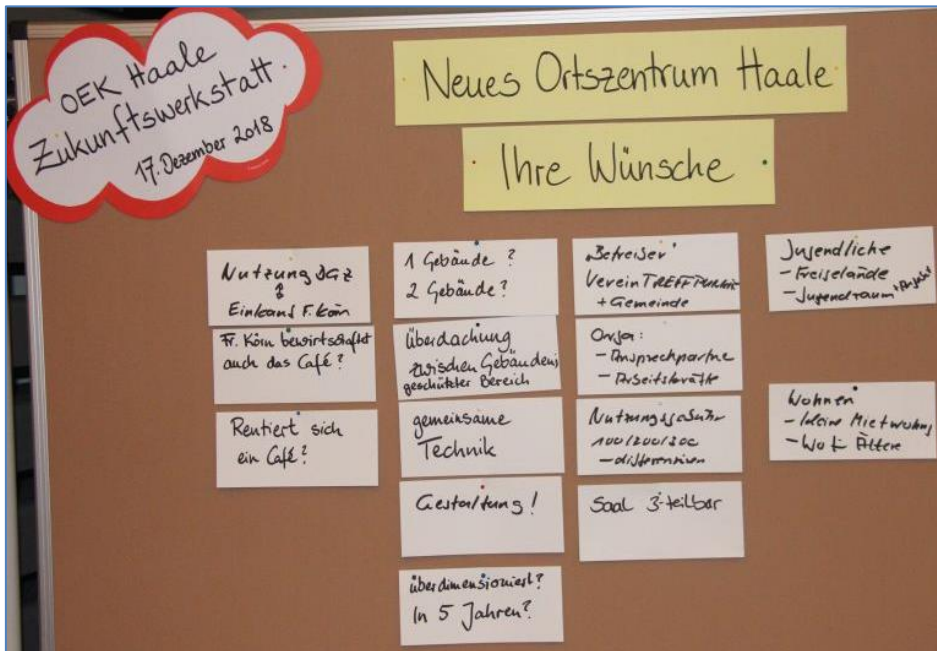 OEK Haale
Zukunftswerkstatt
17. Dezember 2018
Neues Ortszentrum Haale
Ihre Wünsche
Nutzung DGZ
Einkauf F. Körn
Fr. Körn bewirtschaftet
auch das Café?
Rentiert sich
ein Café?
1 Gebäude?
2 Gebäude?
Überdachung
zwischen Gebäuden;
geschützter Bereich
gemeinsame
Technik
Gestaltung!
überdimensioniert?
In 5 Jahren?
"Betreiber"
Verein TREFFPUNKT
+ Gemeinde
Orga:
- Ansprechpartner
- Arbeitskräfte
Nutzungsgebühr
100/200/300
- differenzieren
Saal 3-teilbar
Jugendliche
- Freigelände
- Jugendraum
Wohnen
- kleine Mietwohng
- Wo f. Ältere